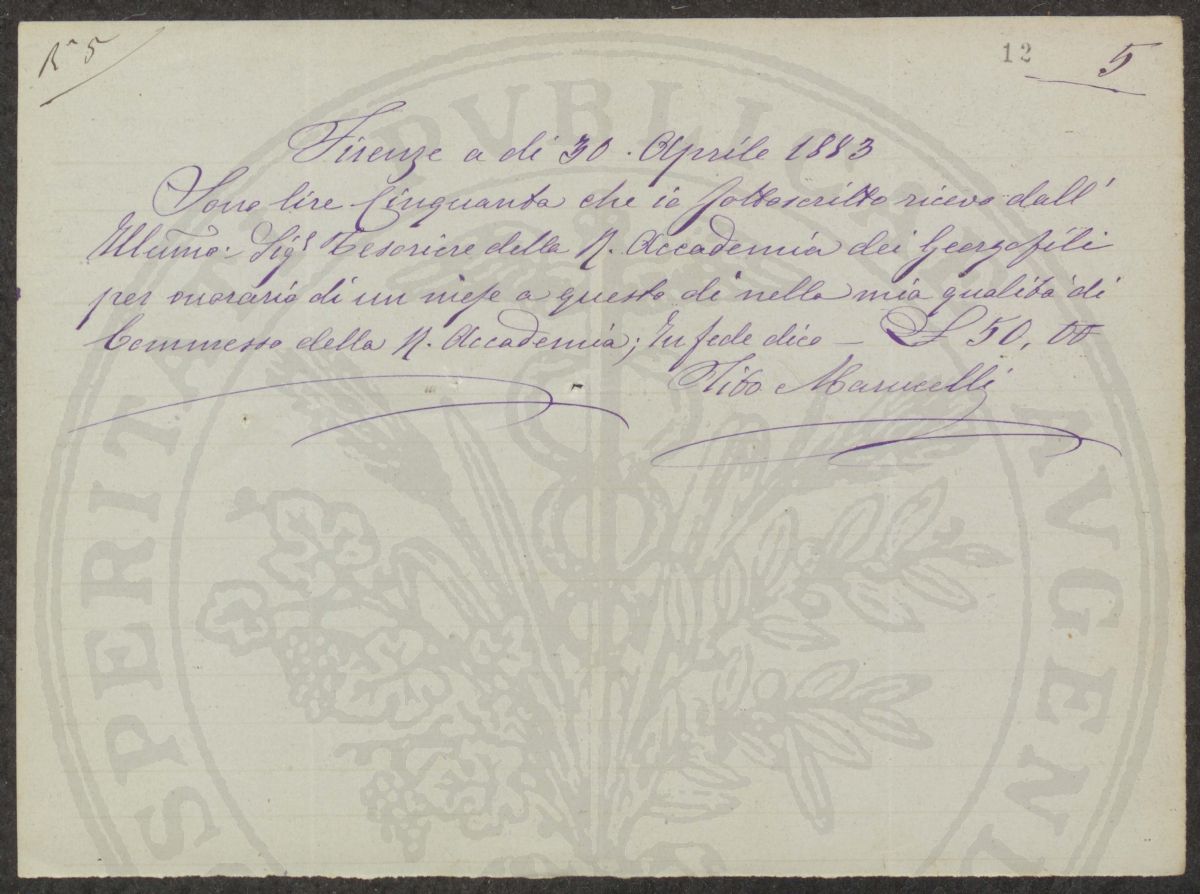 Rª 5
12
5
Firenze a di 30. Aprile 1883
Sono lire Cinquanta che io sottoscritto ricevo dall'
Illumo: Sigr Tesoriere della R. Accademia dei Georgofili
per onorario di un mese a questo di nella mia qualità di
Commesso della R. Accademia; In fede dico — £ 50, 00
Tito Marucelli
SPERITATI PVBLICAE AVGEN